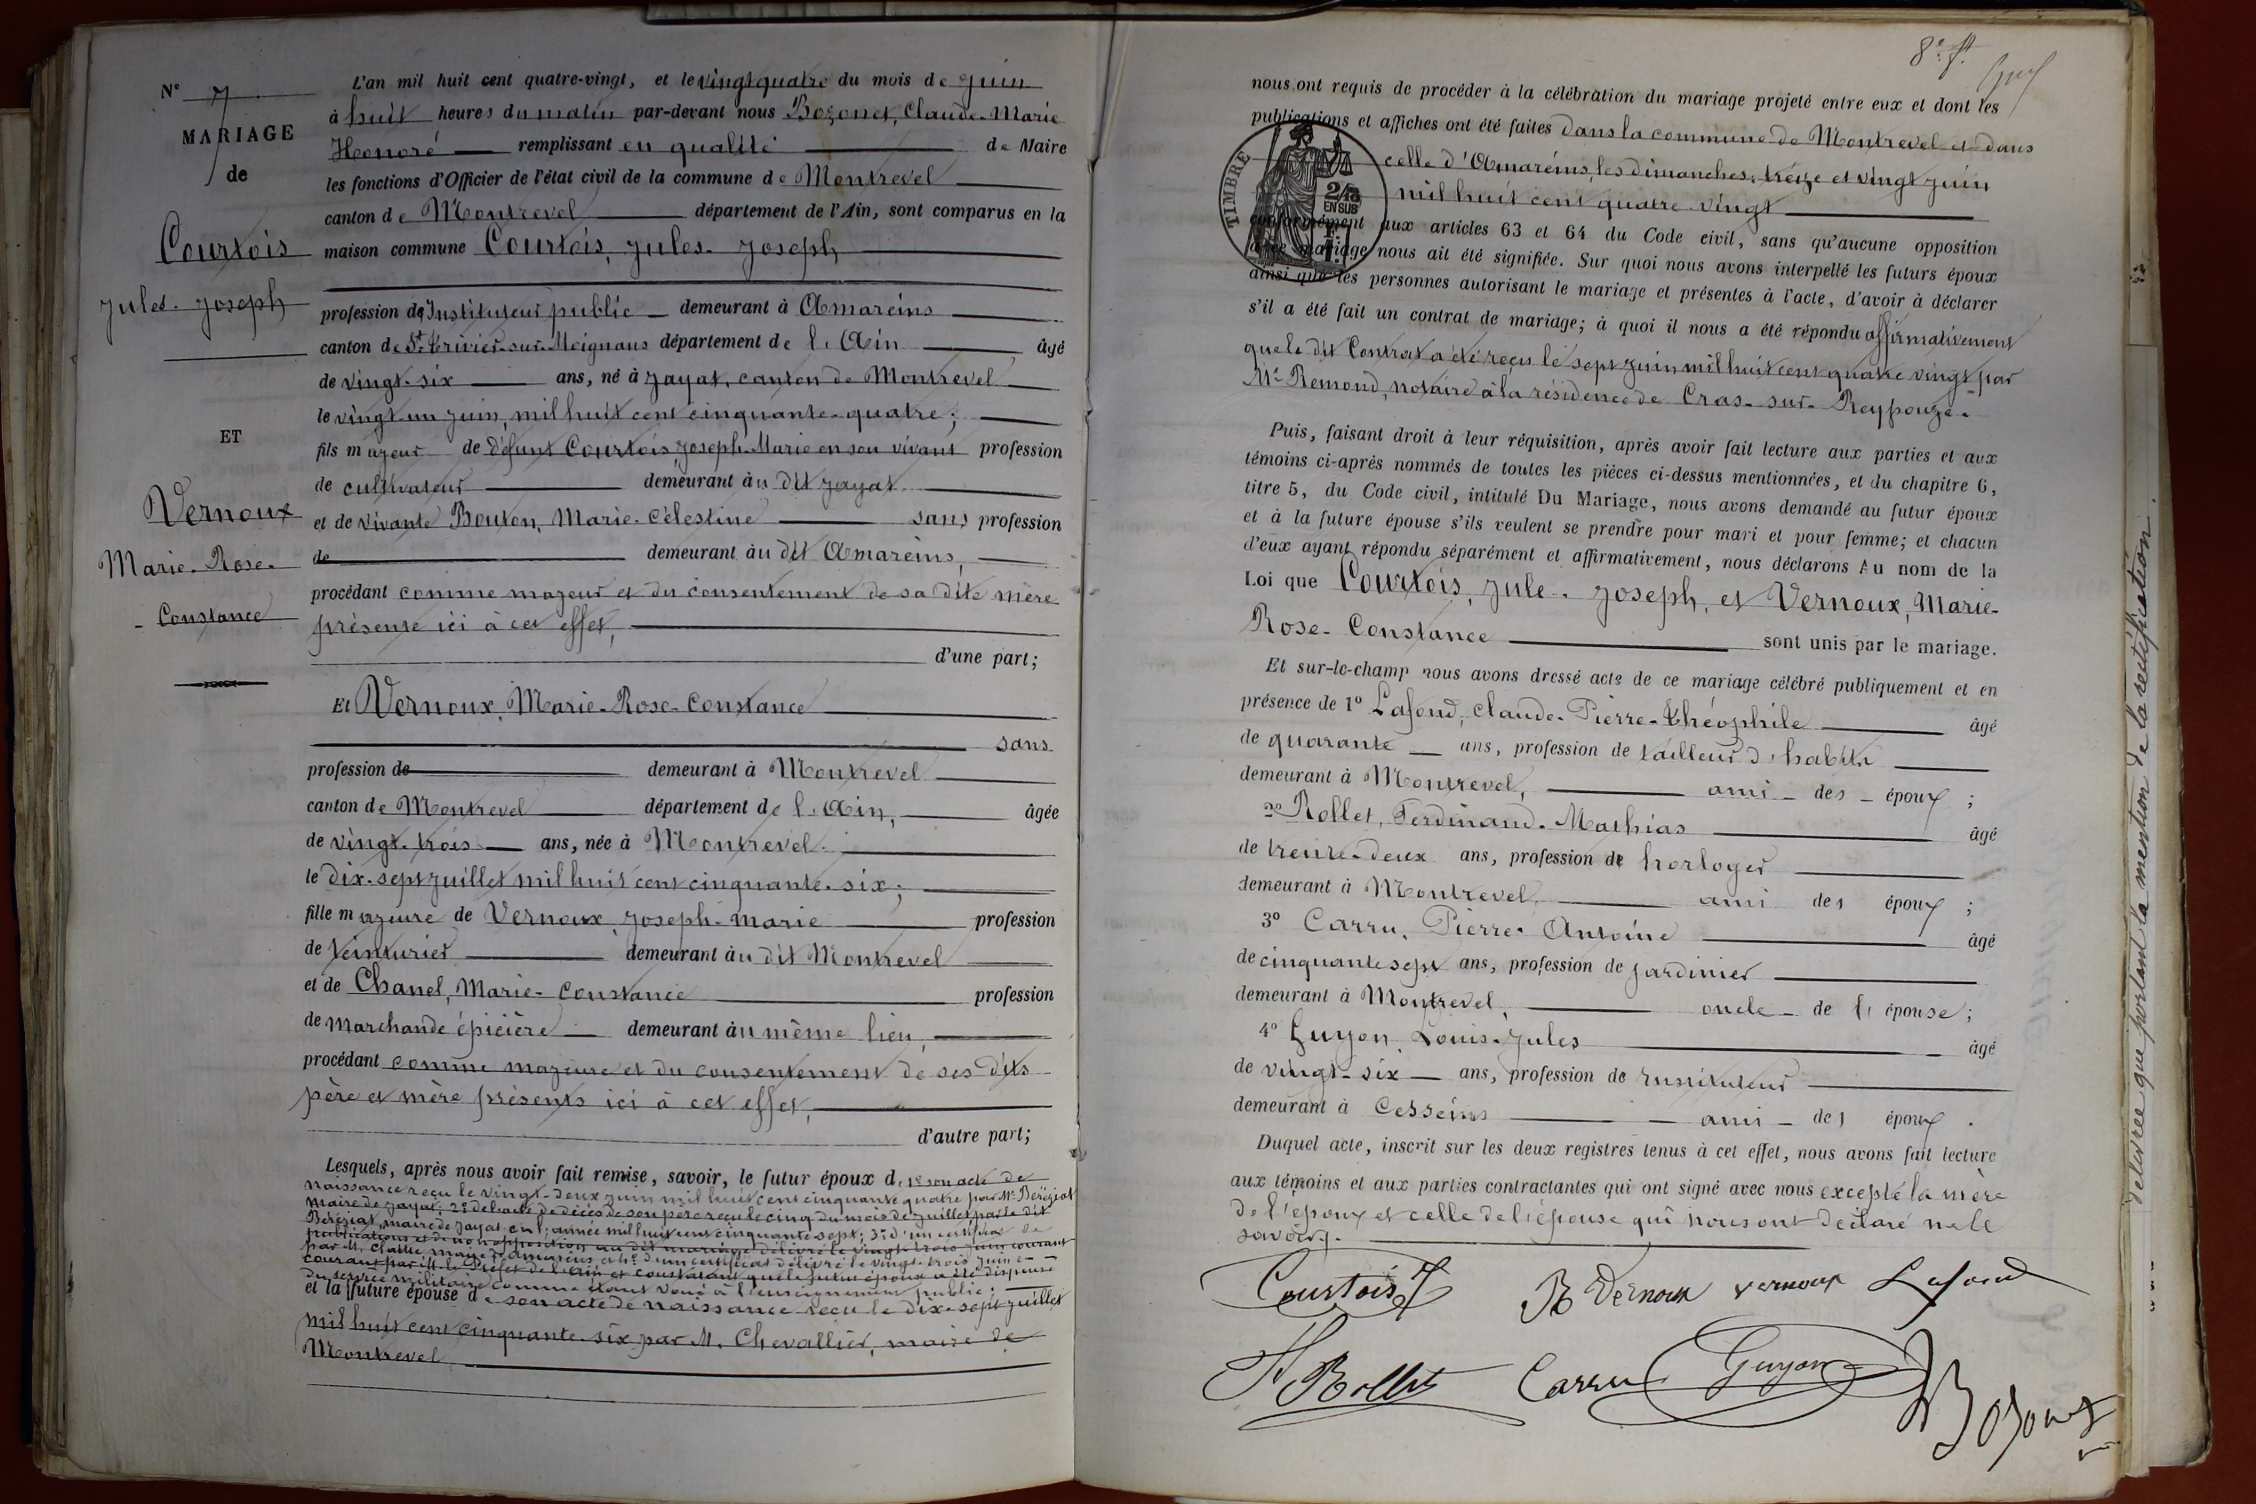 N° 7
MARIAGE
de
Courtois
Jules-Joseph
ET
Vernoux
Marie-Rose-
-Constance
L'an mil huit cent quatre-vingt, et le vingt quatre du mois de juin
à huit heures du matin par-devant nous Bozonet, Claude-Marie
Honoré remplissant en qualité de Maire
les fonctions d'Officier de l'état civil de la commune de Montrevel
canton de Montrevel département de l'Ain, sont comparus en la
maison commune Courtois, Jules-Joseph
profession d'Instituteur public demeurant à Amareins
canton de St Trivier-sur-Moignans département de l'Ain âgé
de vingt-six ans, né à Jayat, canton de Montrevel
le vingt-un juin, mil huit cent cinquante-quatre;
fils majeur de défunt Courtois Joseph-Marie en son vivant profession
de cultivateur demeurant au dit Jayat
et de vivante Bouton, Marie-Célestine sans profession
de demeurant au dit Amareins,
procédant comme majeur et du consentement de sa dite mère
présente ici à cet effet,
d'une part;
Et Vernoux, Marie-Rose-Constance
sans
profession de demeurant à Montrevel
canton de Montrevel département de l'Ain, âgée
de vingt-trois ans, née à Montrevel
le dix-sept juillet mil huit cent cinquante-six;
fille majeure de Vernoux, Joseph-Marie profession
de teinturier demeurant au dit Montrevel
et de Chanel, Marie-Constance profession
de marchande épicière demeurant au même lieu,
procédant comme majeure et du consentement de ses dits
père et mère présents ici à cet effet,
d'autre part;
Lesquels, après nous avoir fait remise, savoir, le futur époux de 1° son acte de
naissance reçu le vingt-deux juin mil huit cent cinquante quatre par Mr Béréziat
Maire de Jayat; 2° de l'acte de décès de son père reçu le cinq du mois de juillet par le dit
Béréziat, maire de Jayat en l'année mil huit cent cinquante sept; 3° d'un certificat de
publications et de non opposition au dit mariage délivré le vingt-trois juin courant
par M. maire d'Amareins, et 4° d'un certificat délivré le vingt-trois juin
courant par M. le Préfet de l'Ain et constatant que le futur époux a été dispensé
du service militaire comme étant voué à l'enseignement public;
et la future épouse de son acte de naissance reçu le dix-sept juillet
mil huit cent cinquante-six par M. Chevallier, maire de
Montrevel
8e ft
nous ont requis de procéder à la célébration du mariage projeté entre eux et dont les
publications et affiches ont été faites dans la commune de Montrevel et dans
celle d'Amareins, les dimanches, treize et vingt juin
mil huit cent quatre-vingt
TIMBRE
2/10
EN SUS
conformément aux articles 63 et 64 du Code civil, sans qu'aucune opposition
audit mariage nous ait été signifiée. Sur quoi nous avons interpellé les futurs époux
ainsi que les personnes autorisant le mariage et présentes à l'acte, d'avoir à déclarer
s'il a été fait un contrat de mariage; à quoi il nous a été répondu affirmativement
que le dit Contrat a été reçu le sept juin mil huit cent quatre vingt par
Me Remond, notaire à la résidence de Cras-sur-Reyssouze.
Puis, faisant droit à leur réquisition, après avoir fait lecture aux parties et aux
témoins ci-après nommés de toutes les pièces ci-dessus mentionnées, et du chapitre 6,
titre 5, du Code civil, intitulé Du Mariage, nous avons demandé au futur époux
et à la future épouse s'ils veulent se prendre pour mari et pour femme; et chacun
d'eux ayant répondu séparément et affirmativement, nous déclarons Au nom de la
Loi que Courtois, Jule-Joseph, et Vernoux, Marie-
Rose-Constance sont unis par le mariage.
Et sur-le-champ nous avons dressé acte de ce mariage célébré publiquement et en
présence de 1° Lafond, Claude-Pierre-Théophile âgé
de quarante ans, profession de tailleur d'habits
demeurant à Montrevel, ami des époux;
2° Rollet, Ferdinand-Mathias âgé
de trente-deux ans, profession de horloger
demeurant à Montrevel, ami des époux;
3° Carru, Pierre-Antoine âgé
de cinquante sept ans, profession de jardinier
demeurant à Montrevel, oncle de l'épouse;
4° Guyon, Louis-Jules âgé
de vingt-six ans, profession de Instituteur
demeurant à Cesseins ami des époux.
Duquel acte, inscrit sur les deux registres tenus à cet effet, nous avons fait lecture
aux témoins et aux parties contractantes qui ont signé avec nous excepté la mère
de l'époux et celle de l'épouse qui nous ont déclaré ne le
savoir.
Courtois J R Vernoux Vernoux Lafond
F Rollet Carru Guyon Bozonet
délivrée que portant la mention de la rectification.